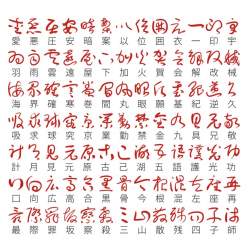 愛 悪 圧 安 暗 案 以 位 囲 衣 一 印 宇
羽 雨 雲 遠 屋 下 加 火 賀 会 解 改 械
海 界 確 寒 巻 間 丸 眼 願 基 紀 逆 久
吸 求 球 究 京 業 勤 禁 金 九 具 兄
計 月 見 元 原 古 己 湖 五 語 護 光 功
口 向 広 高 合 黒 骨 今 根 混 左 座 再
最 際 罪 坂 察 殺 三 山 散 残 四 子 師